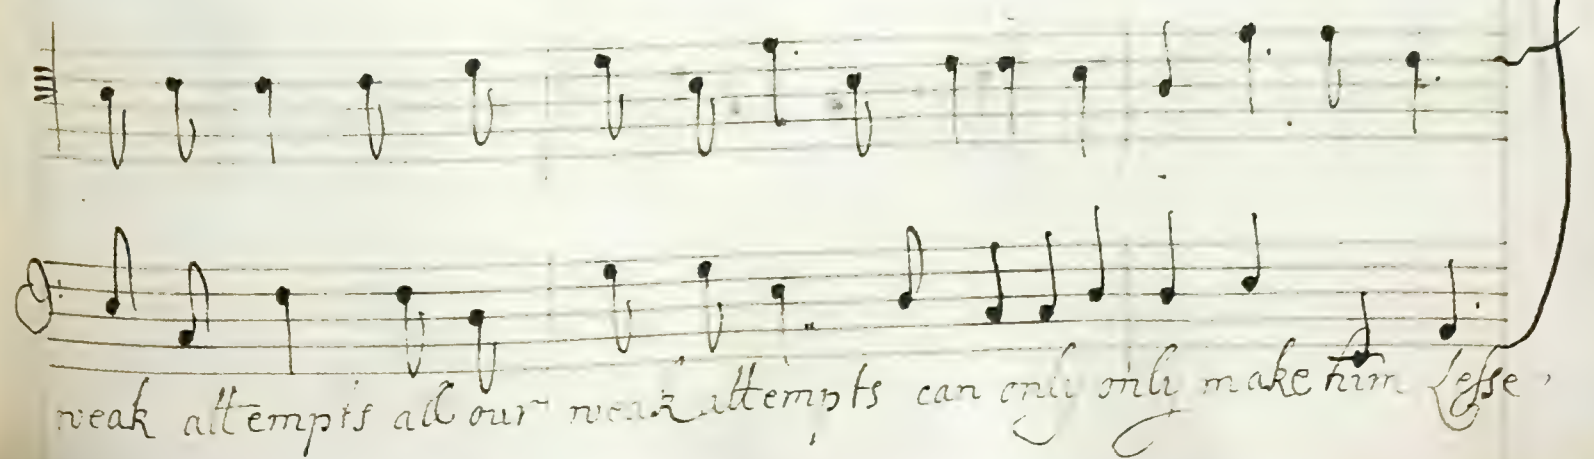 weak attempts all our weak attempts can only only make him Lesse,